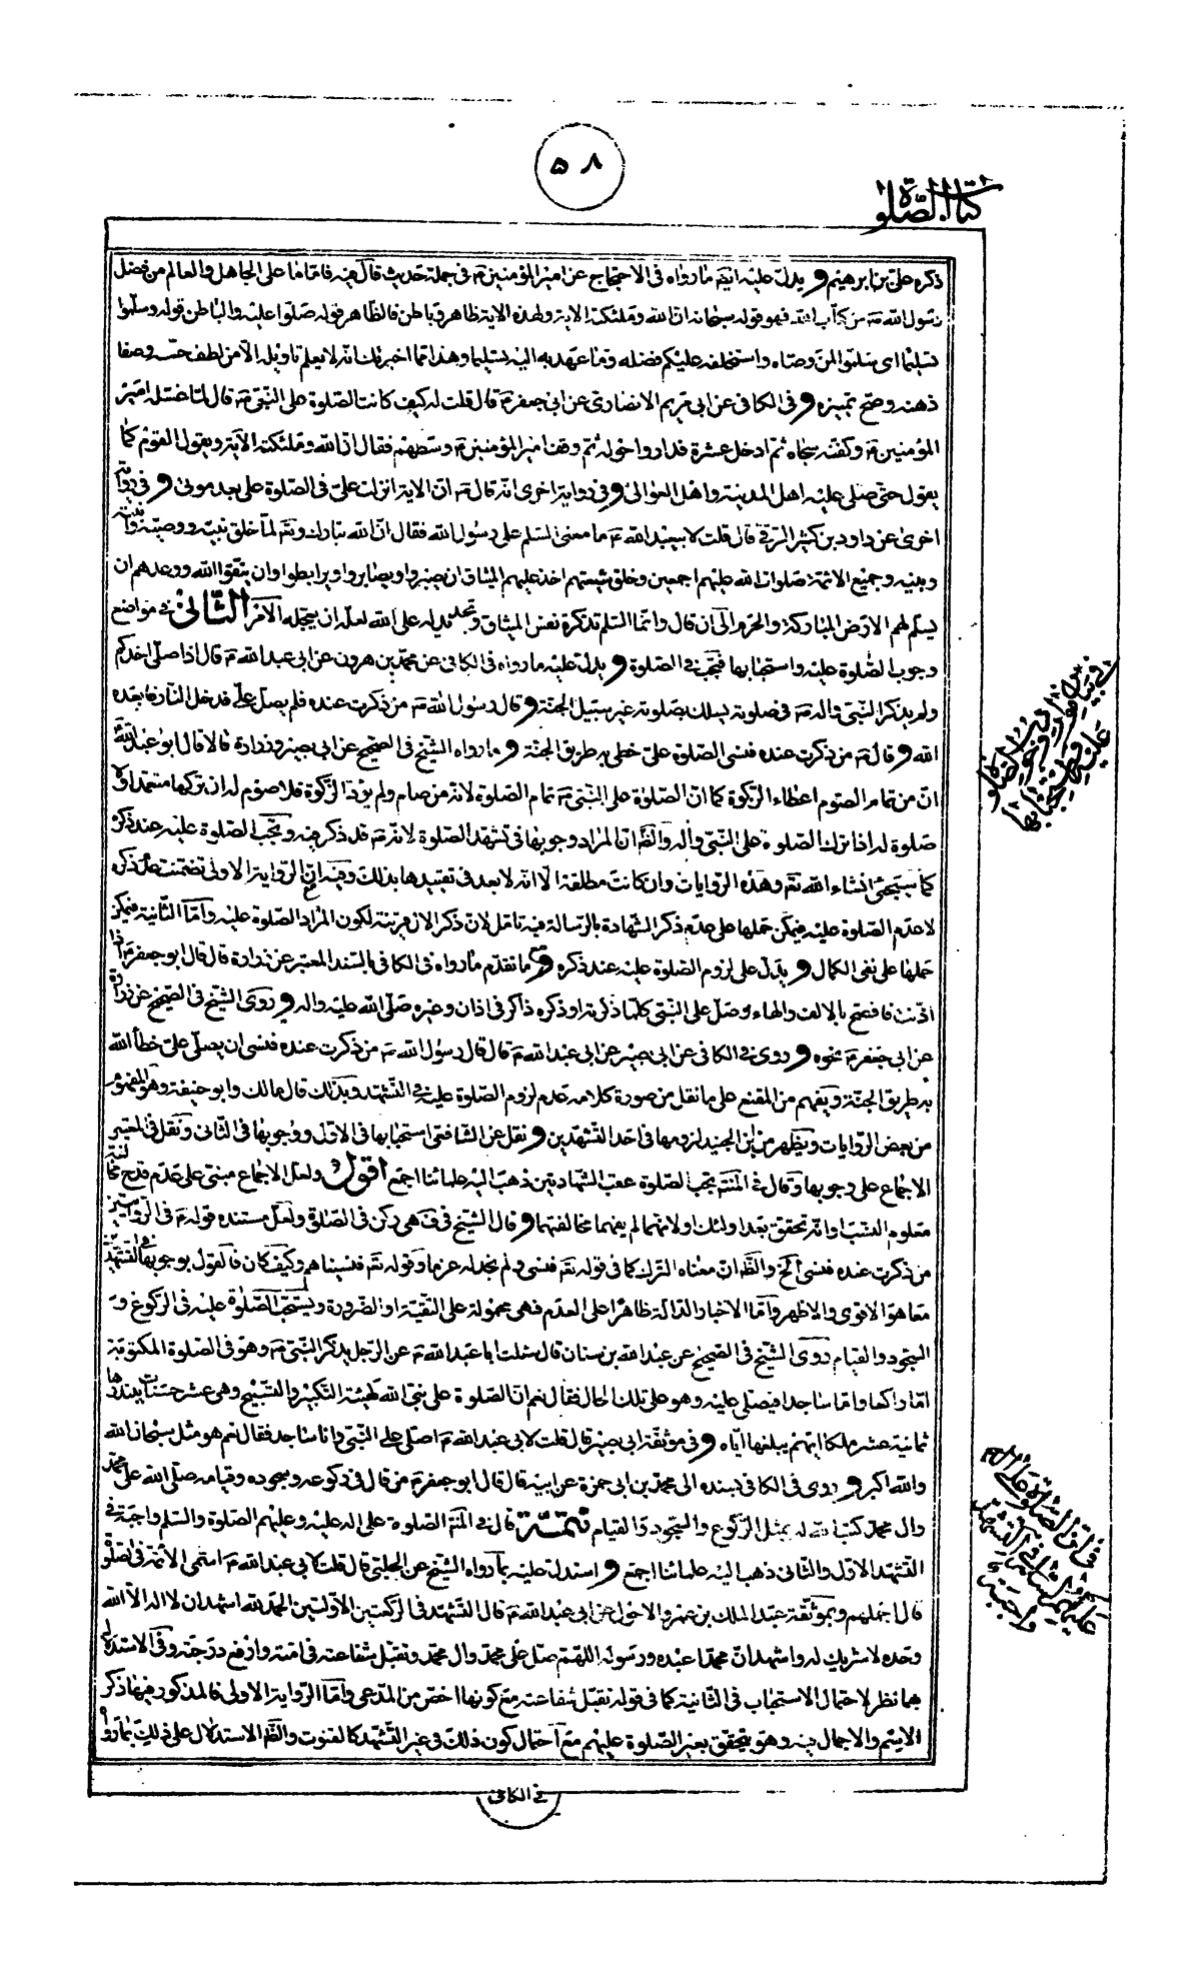 ٥٨
كتاب الصلوة
ذكره علي بن ابرهيم و يدل عليه ايضا ما رواه في الاحتجاج عن امير المؤمنين ع في جملة حديث قال فيه فاما ما على الجاهل والعالم من فضل
رسول الله ص من كتاب الله فهو قوله سبحانه ان الله وملئكته الاية ولهذه الاية ظاهر وباطن فالظاهر قوله صلوا عليه والباطن قوله وسلموا
تسليما اى سلموا لمن وصاه واستخلفه عليكم فضله وما عهد به اليه تسليما وهذا مما اخبرتك انه لا يعلم تاويله الا من لطف حسه وصفا
ذهنه وصح تميزه و في الكافى عن ابى مريم الانصارى عن ابى جعفر ع قال قلت له كيف كانت الصلوة على النبى ص قال لما غسله امير
المؤمنين ع وكفنه سجاه ثم ادخل عشرة فداروا حوله ثم وقف امير المؤمنين ع وسطهم فقال ان الله وملئكته الاية ويقول القوم كما
يقول حتى صلى عليه اهل المدينة واهل العوالى و في رواية اخرى انه قال ص ان الاية انزلت على فى الصلوة على بعد موتى و في رواية
اخرى عن داود بن كثير الرقي قال قلت لابيعبد الله ع ما معنى السلم على رسول الله فقال ان الله تبارك وتعالى لما خلق نبيه ووصيه وابنته
وبنيه وجميع الائمة صلوات الله عليهم اجمعين وخلق شيعتهم اخذ عليهم الميثاق ان يصبروا ويصابروا ويرابطوا وان يتقوا الله ووعدهم ان
يسلم لهم الارض المباركة والحرم الى ان قال وانما السلم تذكرة نفس الميثاق وتجديد له على الله لعله ان يعجله الامر الثانى في مواضع
وجوب الصلوة عليه واستحبابها فتجب في الصلوة و يدل عليه ما رواه فى الكافى عن محمد بن هرون عن ابى عبد الله ع قال اذا صلى احدكم
ولم يذكر النبى واله ص فى صلوته يسلك بصلوته غير سبيل الجنة و قال رسول الله ص من ذكرت عنده فلم يصل على فدخل النار فابعده
الله و قال ص من ذكرت عنده فنسى الصلوة على خطى به طريق الجنة و ما رواه الشيخ فى الصحيح عن ابى بصير وزرارة قالا قال ابو عبد الله
ان من تمام الصوم اعطاء الزكوة كما ان الصلوة على النبى ص تمام الصلوة لانه من صام ولم يؤد الزكوة فلا صوم له ان تركها متعمدا ولا
صلوة له اذا ترك الصلوة على النبى واله والظ ان المراد وجوبها فى تشهد الصلوة لانه ص قد ذكر فيه وتجب الصلوة عليه عند ذكره
كما سيجئ انشاء الله تعم وهذه الروايات وان كانت مطلقة الا انه لا بعد فى تقييدها بذلك وفيه ان الرواية الاولى تضمنت عدم ذكره
لا عدم الصلوة عليه فيمكن حملها على عدم ذكر الشهادة بالرسالة فيه تامل لان ذكر الال قرينة لكون المراد الصلوة عليه واما الثانية فيمكن
حملها على نفى الكمال و يدل على لزوم الصلوة عليه عند ذكره ما تقدم ما رواه فى الكافى بالسند المعتبر عن زرارة قال قال ابو جعفر ع اذا
اذنت فافصح بالالف والهاء وصل على النبى كلما ذكرته او ذكره ذاكر فى اذان وغيره صلى الله عليه واله و روى الشيخ فى الصحيح عن زرارة
عن ابى جعفر ع نحوه و روى في الكافى عن ابى بصير عن ابى عبد الله ع قال قال رسول الله ص من ذكرت عنده فنسى ان يصلى على خطأ الله
به طريق الجنة ويفهم من المقنع على ما نقل من صورة كلامه عدم لزوم الصلوة عليه في التشهد وبذلك قال مالك وابو حنيفة وهو المفهوم
من بعض الروايات ويظهر من ابن الجنيد لزومها فى احد التشهدين و نقل عن الشافعى استحبابها فى الاول ووجوبها فى الثانى ونقل فى المعتبر
الاجماع على وجوبها وقال فى المنتهى تجب الصلوة عقب الشهادتين ذهب اليه علمائنا اجمع اقول ولعل الاجماع مبنى على عدم قدح مخالفة
معلوم النسب او انه تحقق بعد اولئك اولانهما لم يفهما مخالفتهما و قال الشيخ فى ف هى ركن فى الصلوة ولعل مستنده قوله ع فى الروايتين
من ذكرت عنده فنسى الخ والظ ان معناه الترك كما فى قوله تعم فنسى ولم نجد له عزما وقوله تعم فنسيناهم وكيف كان فالقول بوجوبها فى التشهد
معا هو الاقوى والاظهر واما الاخبار الدالة ظاهرا على العدم فهى محمولة على التقية او الضرورة ويستحب الصلوة عليه فى الركوع و
السجود والقيام روى الشيخ فى الصحيح عن عبد الله بن سنان قال سئلت ابا عبد الله ع عن الرجل يذكر النبى ص وهو فى الصلوة المكتوبة
اما راكعا واما ساجدا فيصلى عليه وهو على تلك الحال فقال نعم ان الصلوة على نبى الله كهيئة التكبير والتسبيح وهى عشر حسنات يبتدرها
ثمانية عشر ملكا ايهم يبلغها اياه و فى موثقة ابى بصير قال قلت لابى عبد الله ع اصلى على النبى وانا ساجد فقال نعم هو مثل سبحان الله
والله اكبر و روى فى الكافى بسنده الى محمد بن ابى حمزة عن ابيه قال قال ابو جعفر ع من قال فى ركوعه وسجوده وقيامه صلى الله على محمد
وال محمد كتب الله له بمثل الركوع والسجود والقيام تتمة قال في المنتهى الصلوة على اله عليه وعليهم الصلوة والسلم واجبة في
التشهد الاول والثانى ذهب اليه علمائنا اجمع و استدل عليه بما رواه الشيخ عن الحلبى قال قلت لابى عبد الله ع اسمى الائمة فى الصلوة
قال اجملهم وبموثقة عبد الملك بن عمرو الاحول عن ابى عبد الله ع قال التشهد فى الركعتين الاولتين الحمد لله اشهد ان لا اله الا الله
وحده لا شريك له واشهد ان محمدا عبده ورسوله اللهم صل على محمد وال محمد وتقبل شفاعته فى امته وارفع درجته وفى الاستدلال
بهما نظر لاحتمال الاستحباب فى الثانية كما فى قوله تقبل شفاعته مع كونها اخص من المدعى واما الرواية الاولى فالمذكور فيها ذكر
الائمة والاجمال فيه وهو يتحقق بغير الصلوة عليهم مع احتمال كون ذلك فى غير التشهد كالقنوت والظ الاستدلال على ذلك بما رواه
في الكافى
في بيان مواضع وجوب الصلوة عليه واستحبابها
في ان الصلوة على اله عليهم السلام في التشهد واجبة